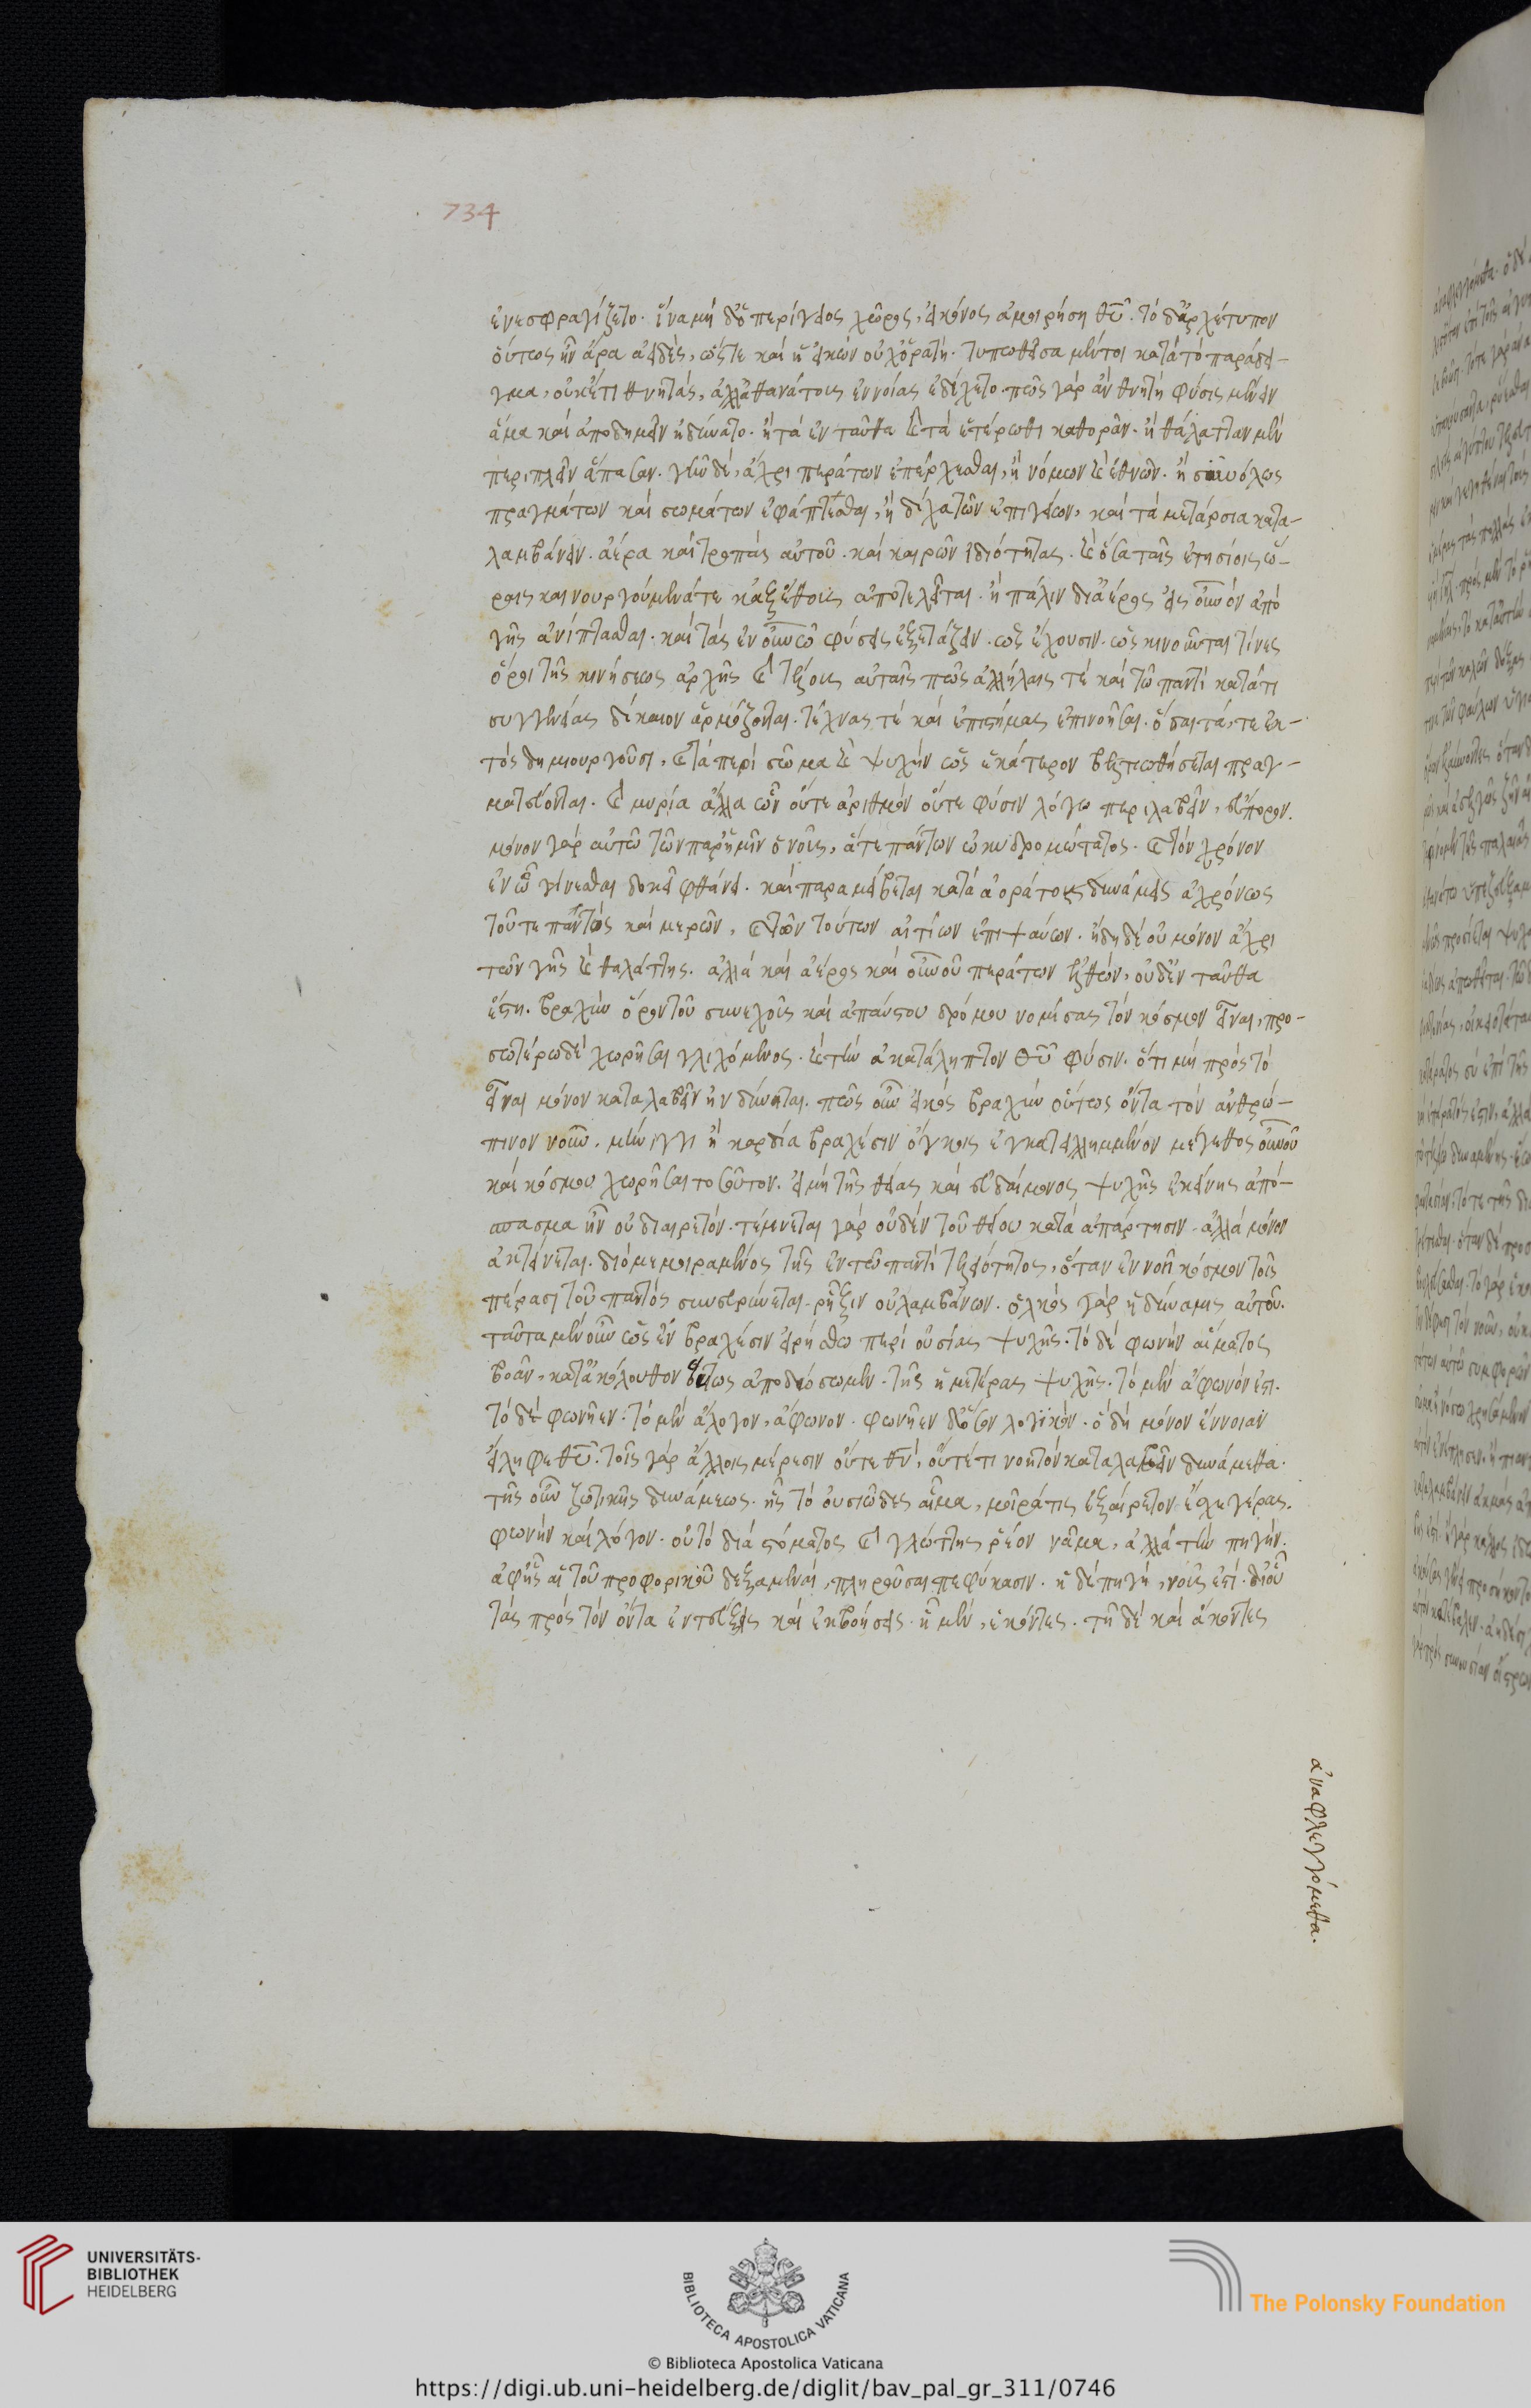 734
ἐνεσφραγίζετο. ἵνα μὴ δὲ ὁ περίγειος χῶρος, εἰκόνος ἀμοιρήση θ̅υ̅. τὸ δ' ἀρχέτυπον
οὕτως ἦν ἄρα ἀειδὲς, ὥστε καὶ ἡ εἰκὼν οὐχ ὁρατή. τυπωθεῖσα μέντοι κατὰ τὸ παράδει-
γμα, οὐκέτι θνητὰς, ἀλλ' ἀθανάτους ἐννοίας ἐδέχετο. πῶς γὰρ ἂν θνητὴ φύσις μένειν
ἅμα καὶ ἀποδημεῖν ἠδύνατο. ἢ τὰ ἐν ταῦθα καὶ τὰ ἑτέρωθι καθορᾶν. ἢ θάλατταν μὲν
περιπλεῖν ἅπασαν. γῆν δὲ, ἄχρι περάτων ἐπέρχεσθαι, ἢ νόμων καὶ ἐθνῶν. ἢ συνόλως
πραγμάτων καὶ σωμάτων ἐφάπτεσθαι, ἢ δίχα τῶν ἐπιγείων, καὶ τὰ μετάρσια κατα-
λαμβάνειν. ἀέρα καὶ τροπὰς αὐτοῦ. καὶ καιρῶν ἰδιότητας. καὶ ὅσα ταῖς ἐτησίοις ὥ-
ραις καινουργούμενά τε κἀξ ἔθους ἀποτελεῖται. ἢ πάλιν δι' ἀέρος εἰς ο̅υ̅ν̅ον ἀπὸ
γῆς ἀνίπτασθαι. καὶ τὰς ἐν ο̅υ̅ν̅ῶ φύσεις ἐξετάζειν. ὡς ἔχουσιν. ὡς κινοῦνται τίνες
ὅροι τῆς κινήσεως ἀρχῆς καὶ τέλους αὐταῖς πῶς ἀλλήλαις τὲ καὶ τῶ παντὶ κατά τι
συγγενείας δίκαιον ἁρμόζονται. τέχνας τὲ καὶ ἐπιστήμας ἐπινοῆσαι. ὅσαι τά, τε ἐκ-
τὸς δημιουργοῦσι, καὶ τὰ περὶ σῶμα καὶ ψυχὴν ὡς ἑκάτερον βελτιωθήσεται πραγ-
ματεύονται. καὶ μυρία ἄλλα ὧν οὔτε ἀριθμὸν οὔτε φύσιν λόγω περιλαβεῖν, εὔπορον.
μόνον γὰρ αὐτῶ τῶν παρ' ἡμῖν ὁ νοῦς, ἅτε πάντων ὠκυδρομώτατος. καὶ τὸν χρόνον
ἐν ὧ γίνεσθαι δοκεῖ φθάνει. καὶ παραμείβεται κατὰ ἀοράτους δυνάμεις ἀχρόνως
τοῦ τε παντὸς καὶ μερῶν, καὶ τῶν τούτων αἰτίων ἐπιψαύων. ἤδη δὲ οὐ μόνον ἄχρι
τῶν γῆς καὶ θαλάττης. ἀλλὰ καὶ ἀέρος καὶ ο̅υ̅ν̅οῦ περάτων ἐλθὼν, οὐδ' ἐν ταῦθα
ἔστη. βραχὺν ὅρον τοῦ συνεχοῦς καὶ ἀπαύστου δρόμου νομίσας τὸν κόσμον εἶναι, προ-
σωτέρω δὲ χωρῆσαι γλιχόμενος. καὶ τὴν ἀκατάληπτον θ̅υ̅ φύσιν. ὅτι μὴ πρὸς τὸ
εἶναι μόνον καταλαβεῖν ἢν δύνηται. πῶς οὖν εἰκὸς βραχὺν οὕτως ὄντα τὸν ἀνθρώ-
πινον νοῦν. μήνιγγι ἢ καρδία βραχέσιν ὄγκοις ἐγκατειλημμένον μέγεθος ο̅υ̅ν̅οῦ
καὶ κόσμου χωρῆσαι τοσοῦτον. εἰ μὴ τῆς θείας καὶ εὐδαίμονος ψυχῆς ἐκείνης ἀπό-
σπασμα ἦν οὐ διαιρετόν. τέμνεται γὰρ οὐδὲν τοῦ θείου κατὰ ἀπάρτησιν. ἀλλὰ μόνον
ἐκτείνεται. διὸ μεμοιραμένος τῆς ἐν τῶ παντὶ τελειότητος, ὅταν ἐννοῆ κόσμον τοῖς
πέρασι τοῦ παντὸς συνευρύνεται. ῥῆξιν οὐ λαμβάνων. ὁλκὸς γὰρ ἡ δύναμις αὐτοῦ.
ταῦτα μὲν οὖν ὡς ἐν βραχέσιν εἰρήσθω περὶ οὐσίας ψυχῆς. τὸ δὲ φωνὴν αἵματος
βοᾶν, κατ' ἀκόλουθον οὕτως ἀποδώσωμεν. τῆς ἡμετέρας ψυχῆς. τὸ μὲν ἄφωνόν ἐστι.
τὸ δὲ φωνῆεν. τὸ μὲν ἄλογον, ἄφωνον. φωνῆεν δ' ὅσον λογικόν. ὃ δὴ μόνον ἔννοιαν
εἴληφε θ̅υ̅. τοῖς γὰρ ἄλλοις μέρεσιν οὔτε θ̅ν̅, οὔτέ τι νοητὸν καταλαβεῖν δυνάμεθα.
τῆς οὖν ζωτικῆς δυνάμεως. ἧς τὸ οὐσιῶδες αἷμα, μοῖρά τις ἐξαίρετον ἔσχε γέρας.
φωνὴν καὶ λόγον. οὐ τὸ διὰ στόματος καὶ γλώττης ῥέον νᾶμα, ἀλλὰ τὴν πηγήν.
ἀφ' ἧς αἱ τοῦ προφορικοῦ δεξαμεναὶ, πληροῦσαι πεφύκασιν. ἡ δὲ πηγὴ, νοῦς ἐστί. δι' οὗ
τὰς πρὸς τὸν ὄντα ἐντεύξεις καὶ ἐκβοήσεις. ἧ μὲν, ἑκόντες. τῆ δὲ καὶ ἄκοντες
ἀναφλεγγόμεθα.
UNIVERSITÄTS-
BIBLIOTHEK
HEIDELBERG
BIBLIOTECA APOSTOLICA VATICANA
The Polonsky Foundation
© Biblioteca Apostolica Vaticana
https://digi.ub.uni-heidelberg.de/diglit/bav_pal_gr_311/0746